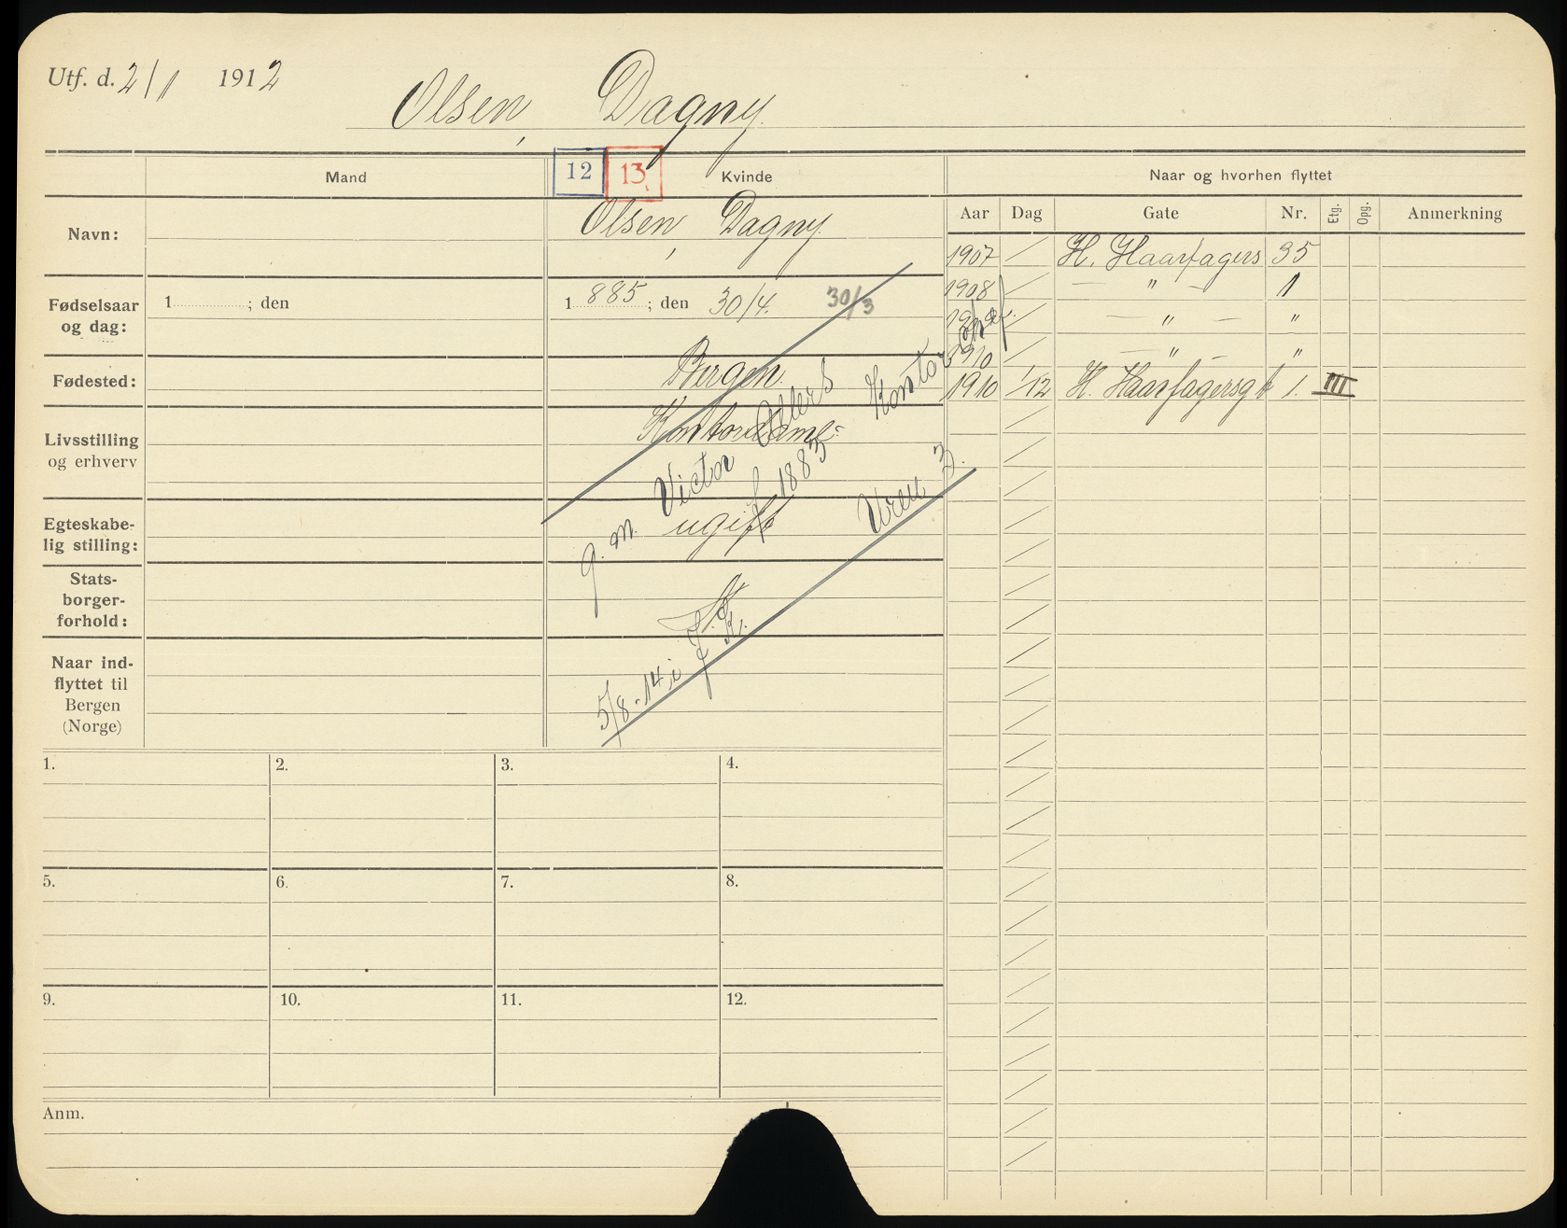 Utf. d. 2/1 1912
Olsen, Dagny.
Mand
12
13
Kvinde
Naar og hvorhen flyttet
Aar Dag Gate Nr. Etg. Opg. Anmerkning
Navn:
Olsen, Dagny.
Fødselsaar
og dag:
1 ; den
1 885 ; den 30/4. 30/3
Fødested:
Bergen.
Livsstilling
og erhverv
Kontordame
g. m. Victor
f 1883
Egteskabe-
lig stilling:
ugift
Stats-
borger-
forhold:
5/8-14 i
Naar ind-
flyttet til
Bergen
(Norge)
1907 H. Haarfagers 35
1908 — " — 1
— " — "
1910 — " — "
1910 1/12 H. Haarfagersg 1. III
1. 2. 3. 4.
5. 6. 7. 8.
9. 10. 11. 12.
Anm.